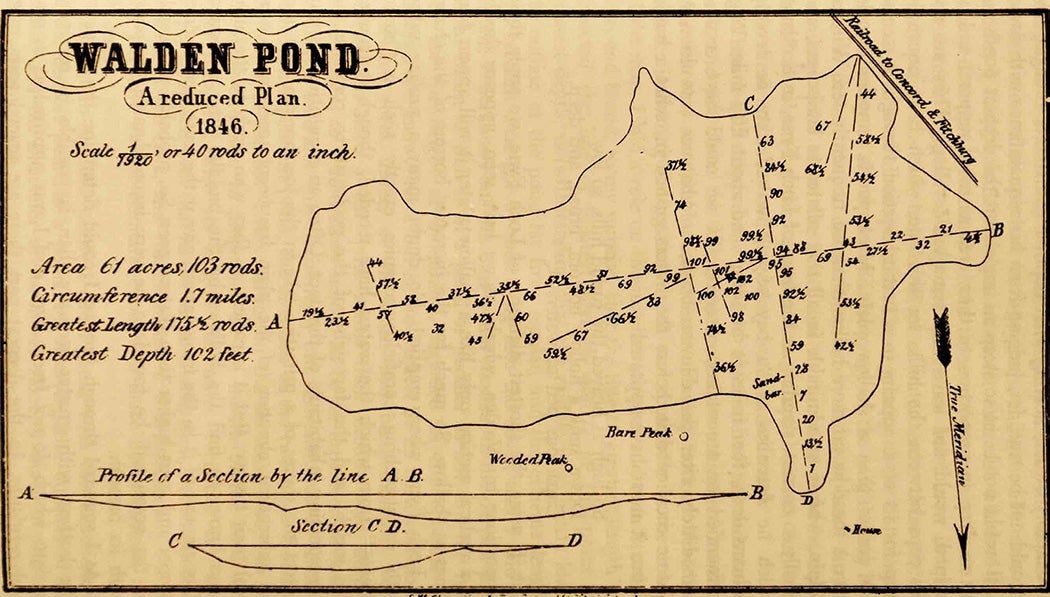 WALDEN POND.
A reduced Plan.
1846.
Scale 1/1920, or 40 rods to an inch.
Area 61 acres, 103 rods.
Circumference 1.7 miles.
Greatest Length 175½ rods.
Greatest Depth 102 feet.
Railroad to Concord & Fitchburg
C
63
84½
90
92
44
67
58½
68½
54½
53½
37½
74
99
99½
101
94
88
69
43
27½
22
32
21
B
A
19½
23½
41
44
57½
58
40
37½
36½
66
52½
48½
51
69
92
99
95
96
54
40½
32
47½
60
59
59½
67
66½
83
100
102
102
100
98
92½
84
59
28
7
20
13½
1
53½
42½
36½
Sand-bar.
D
Bare Peak
Wooded Peak
House
True Meridian
Profile of a Section by the line A.B.
A
B
Section C D.
C
D